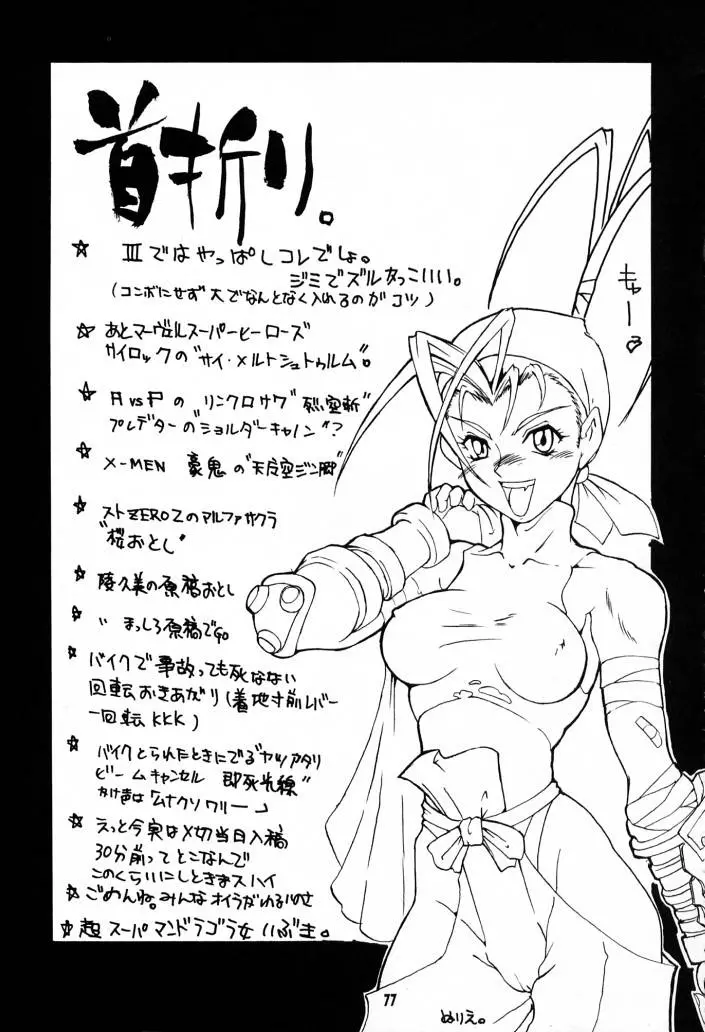 首折り。
☆ IIIではやっぱしコレでしょ。
ジミでズルかっこいい。
(コンボにせず大でなんとなく入れるのがコツ)
☆ あとマーヴェルスーパーヒーローズ
サイロックの"サイ・メルトシュトゥルム"。
☆ AvsPの リンクロサワ
プレデターの"ショルダーキャノン"?
☆ X-MEN 豪鬼の
☆ ストZERO2のマルファサクラ
"桜おとし"
☆ 陵久美の原稿おとし
☆ 〃 まっしろ原稿でGO
☆ バイクで事故っても死なない
回転おきあがり(着地寸前レバー
一回転KKK)
☆ バイクとられたときにでる"ヤツアタリ
ビームキャンセル 即死光線"
かけ声は「ムナクソワリー」
☆ えっと今実は〆切当日入稿
30分前ってとこなんで
このくらいにしときまスハイ
☆ ごめんね。みんなオイラが
☆ 超スーパマンドラゴラ女 いぶき。
キャー♡
77
ぬりえ。